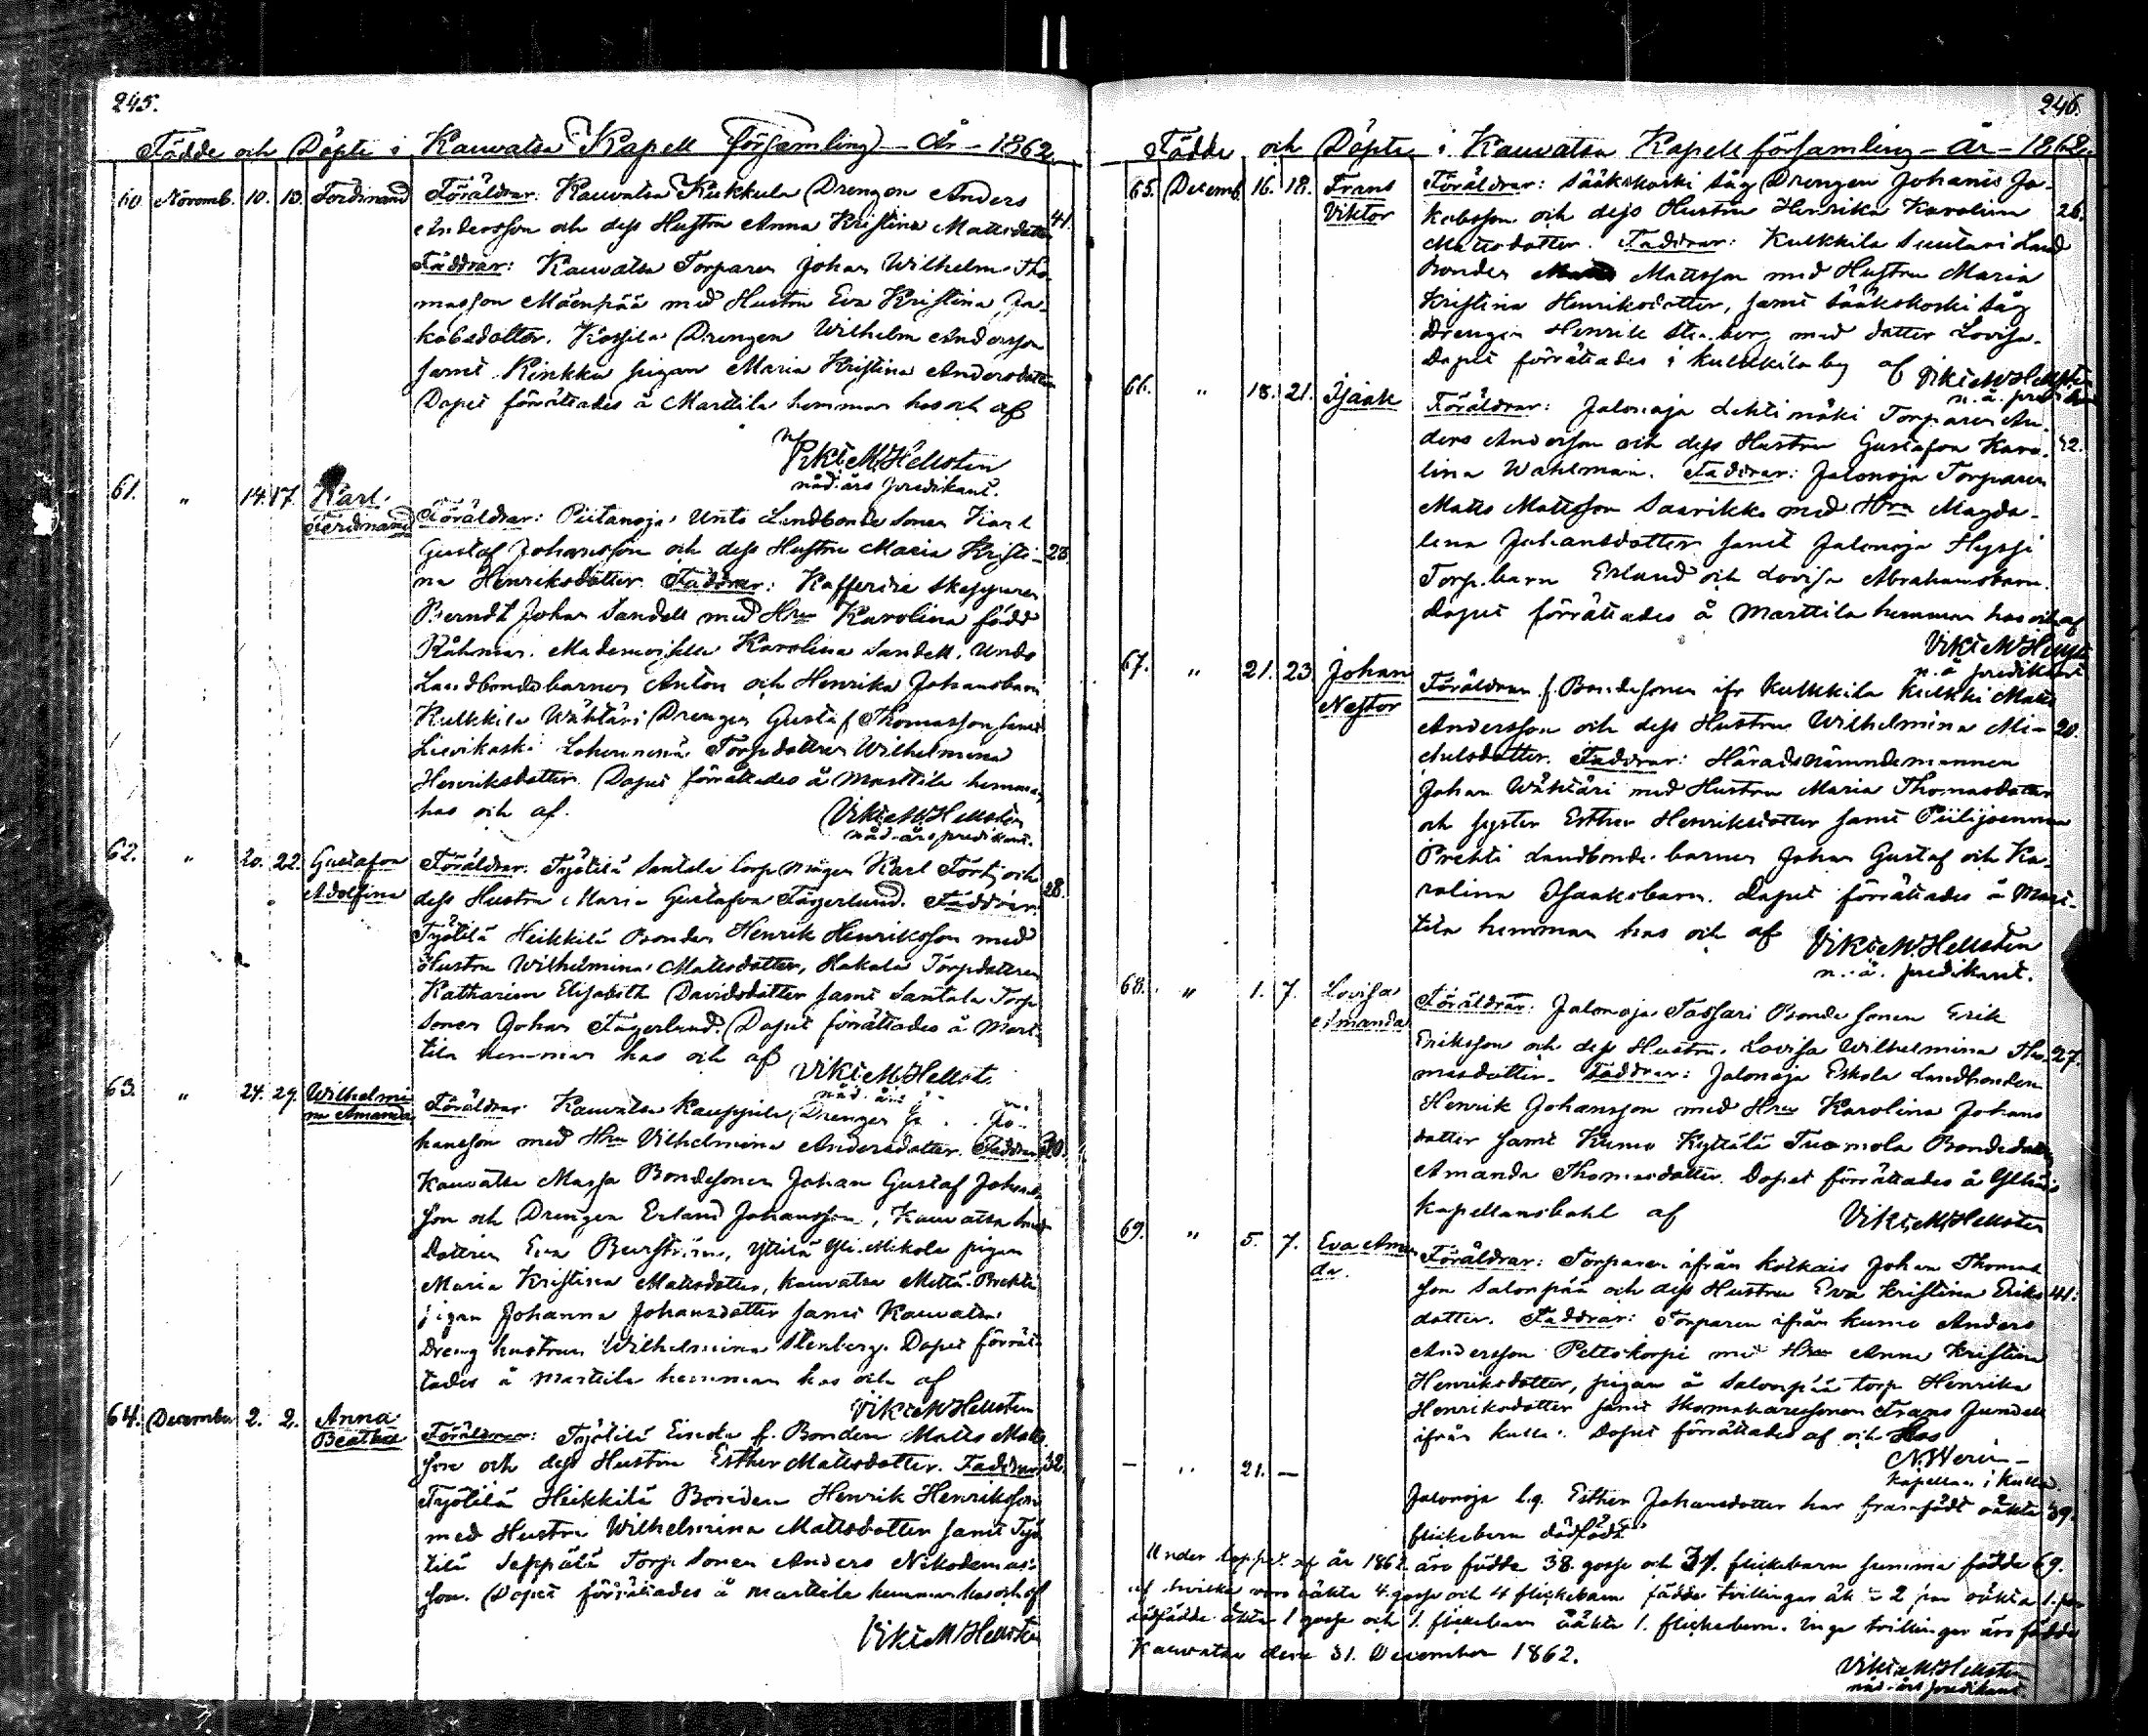 245.
Födde och Döpte i Kauvatsa Kapell församling - År - 1862.
60. Novemb. 10. 13. Ferdinand Föräldrar: Kauvatsa Kukkula Drengen Anders
Andersson och dess Hustru Anna Kristina Mattsdotter 41.
Faddrar: Kauvatsa Torparen Johan Wilhelm Tho-
masson Mäenpää med Hustru Eva Kristina Ja-
kobsdotter. Drengen Wilhelm Andersson
samt Rinkka pigan Maria Kristina Andersdotter
Dopet förrättades å Marttila hemman hos och af
Vikt. M. Hellsten
nåd. års predikant.
61. " 14. 17. Karl
Ferdinand Föräldrar: Piitanoja Unto Landbonde Sonen Karl
Gustaf Johansson och dess Hustru Maria Kristi- 23.
na Henriksdotter. Faddrar: Kofferdie Skepparen
Berndt Johan Sandell med Hru Karolina född
Mademoiselle Karolina Sandell. Unto
Landbondebarnen Anton och Henrika Johansbarn
Kulkkila Wähtäri Drengen Gustaf Thomasson, samt
Torpdottren Wilhelmina
Henriksdotter. Dopet förrättades å Marttila hemman
hos och af. Vikt. M. Hellsten
nåd. års predikant.
62. " 20. 22. Gustafva
Adolfina Föräldrar: Työtilä Santala torp mågen Karl och
dess Hustru Maria Gustafva Fagerlund. Faddrar: 28.
Työtilä Heikkilä Bonden Henrik Henriksson med
Hustru Wilhelmina Mattsdotter, Hakala Torpdottren
Katharina Elisabeth Davidsdotter samt Santala Torp
Sonen Johan Fagerlund. Dopet förrättades å Mart-
tila hemman hos och af Vikt. M. Hellst.
nåd. års
63. " 24. 29. Wilhelmi
na Amanda Föräldrar: Kauvatsa Kauppila Drengen Jo-
hansson med Hru Vilhelmina Andersdotter. Faddrar: 30.
Kauvatsa Massa Bondesonen Johan Gustaf Johans-
son och Drengen Erland Johansson, Kauvatsa
Dottren Eva Burström, Yttilä Yli-Mikola pigan
Maria Kristina Mattsdotter, Kauvatsa Mettä-Prekti
pigan Johanna Johansdotter samt Kauvatsa
Dreng hustrun Wilhelmina Stenberg. Dopet förrät-
tades å Marttila hemman hos och af
Vikt. M. Hellsten
64. December 2. 2. Anna
Beatha Föräldrar: Työtilä Einola f. Bonden Matts Matts-
son och dess Hustru Esther Mattsdotter. Faddrar: 32.
Työtilä Heikkilä Bonden Henrik Henriksson
med Hustru Wilhelmina Mattsdotter samt Työ-
tilä Seppälä Torp Sonen Anders Nikodemus-
son. Dopet förrättades å Marttila hemman hos och af
Vikt. M. Hellsten
246.
Födde och Döpte i Kauvatsa Kapell församling - År - 1862.
65. Decemb. 16. 18. Frans
Viktor Föräldrar: Sääkskoski Såg Drengen Johanis Ja-
kobsson och dess Hustru Henrika Karolina 26.
Mattsdotter. Faddrar: Kulkkila Suutari Land
Bonden Mattsson med Hustru Maria
Kristina Henriksdotter, samt Sääkskoski Såg
Drengen Henrik Stenberg med dotter Lovisa.
Dopet förrättades i Kulkkila by af Vikt. M. Hellsten
n. å. predikant
66. " 18. 21. Isaak Föräldrar: Jalonoja Lehtimäki Torparen An-
ders Andersson och dess Hustru Gustafva Karo- 42.
lina Wahlman. Faddrar: Jalonoja Torparen
Matts Mattsson Saarikko med Hru Magda-
lena Johansdotter samt Jalonoja Hyssi
Torp. barn Erland och Lovisa Abrahamsbarn.
Dopet förrättades å Marttila hemman hos och af
Vikt. M. Hellst
n. å predikant
67. " 21. 23. Johan
Nestor Föräldrar: f. Bondesonen ifr. Kulkkila Kulkki Matts
Andersson och dess Hustru Wilhelmina Mi- 20.
chelsdotter. Faddrar: Häradsnämndemannen
Johan Wähtäri med Hustru Maria Thomasdotter
och syster Esther Henriksdotter samt Piilijoenmaa
Prekti Landbonde barnen Johan Gustaf och Ka-
rolina Isaaksbarn. Dopet förrättades å Mart-
tila hemman hos och af Vikt. M. Hellsten
n. å. predikant.
68. " 1. 7. Lovisa
Amanda Föräldrar: Jalonoja Tassari Bonde sonen Erik
Eriksson och dess Hustru Lovisa Wilhelmina Tho- 27.
masdotter. Faddrar: Jalonoja Eskola Landbonden
Henrik Johansson med Hru Karolina Johans
dotter samt Kumo Kyttälä Tuomola Bondedotter
Amanda Thomasdotter. Dopet förrättades å
Kapellansbohl af Vikt. M. Hellsten
69. " 5. 7. Eva Aman
da. Föräldrar: Torparen ifrån Koikais Johan Thomas
son Salonpää och dess Hustru Eva Kristina Eriks 41.
dotter. Faddrar: Torparen ifrån Kumo Anders
Andersson Peltokorpi med Hru Anna Kristina
Henriksdotter, pigan å Salonpää torp Henrika
Henriksdotter samt Skomakaresonen Frans Jundell
ifrån Kulla. Dopet förrättades af och hos
N. Weren
Kapellan i Kulla.
- " 21. - Jalonoja l.q. Esther Johansdotter har framfödt oäkta 39.
flickebarn dödfödt.
Under loppet af år 1862 äro födde 38. gosse och 31. flickebarn summa födde 69.
af hvilka voro oäkta 4. gosse och 4 flickebarn födde tvillingar äk = 2 par oäkta 1. par
dödfödde äkta 1 gosse och 1. flickebarn oäkta 1. flickebarn. Inga trillingar äro födde
Kauvatsa den 31. December 1862.
Vikt. M. Hellsten
nåd. års predikant